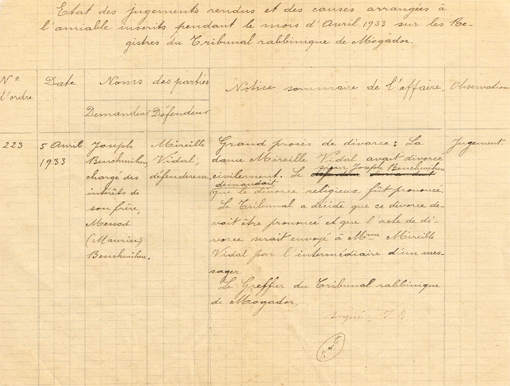 Etat des jugements rendus et des causes arrangées à
l'amiable inscrits pendant le mois d'Avril 1933 sur les Re-
gistres du Tribunal rabbinique de Mogador.
Nº d'ordre
Date
Noms des parties
Demandeur
Défendeur
Notice sommaire de l'affaire,
Observation
223
5 Avril
1933
Joseph
Benchmihen
chargé des
intérêts de
son frère,
Messod
(Maurice)
Benchmihen.
Mireille
Vidal,
défenderesse.
Grand procès de divorce: La
dame Mireille Vidal avait divorcé
civilement. Le sieur Joseph Benchmihen
demandait
que le divorce religieux fût prononcé.
Le Tribunal a décidé que ce divorce de-
vait être prononcé et que l'acte de di-
vorce serait envoyé à Mme Mireille
Vidal par l'intermédiaire d'un mes-
sager
Le Greffier du Tribunal rabbinique
de Mogador.
Jugement